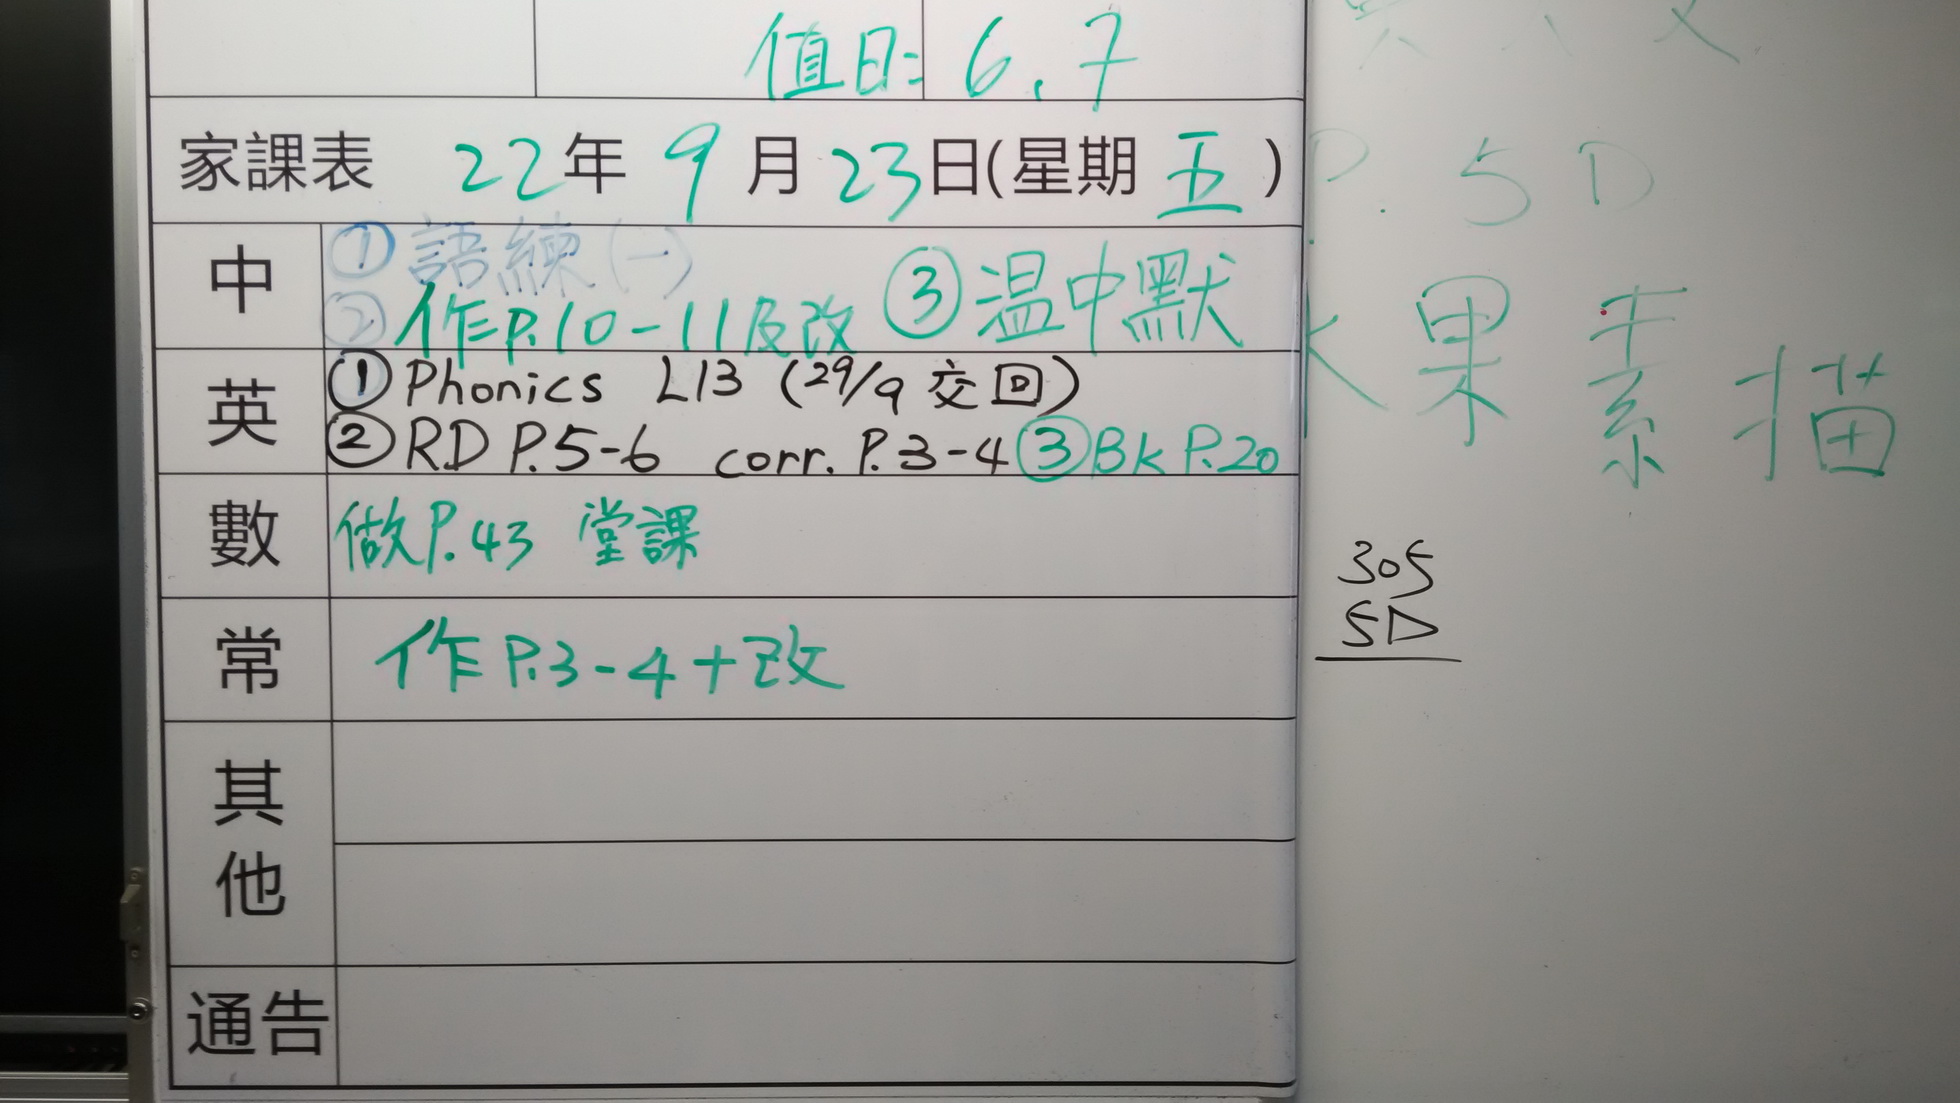 值日: 6.7
家課表 22年 9月 23日(星期 五)
中 ①語練(一)
②作P.10-11及改 ③温中默
英 ①Phonics L13 (29/9 交回)
②RD P.5-6 corr. P.3-4 ③Bk P.20
數 做P.43 堂課
常 作P.3-4+改
其他
通告
P.5D
水果素描
305
5D